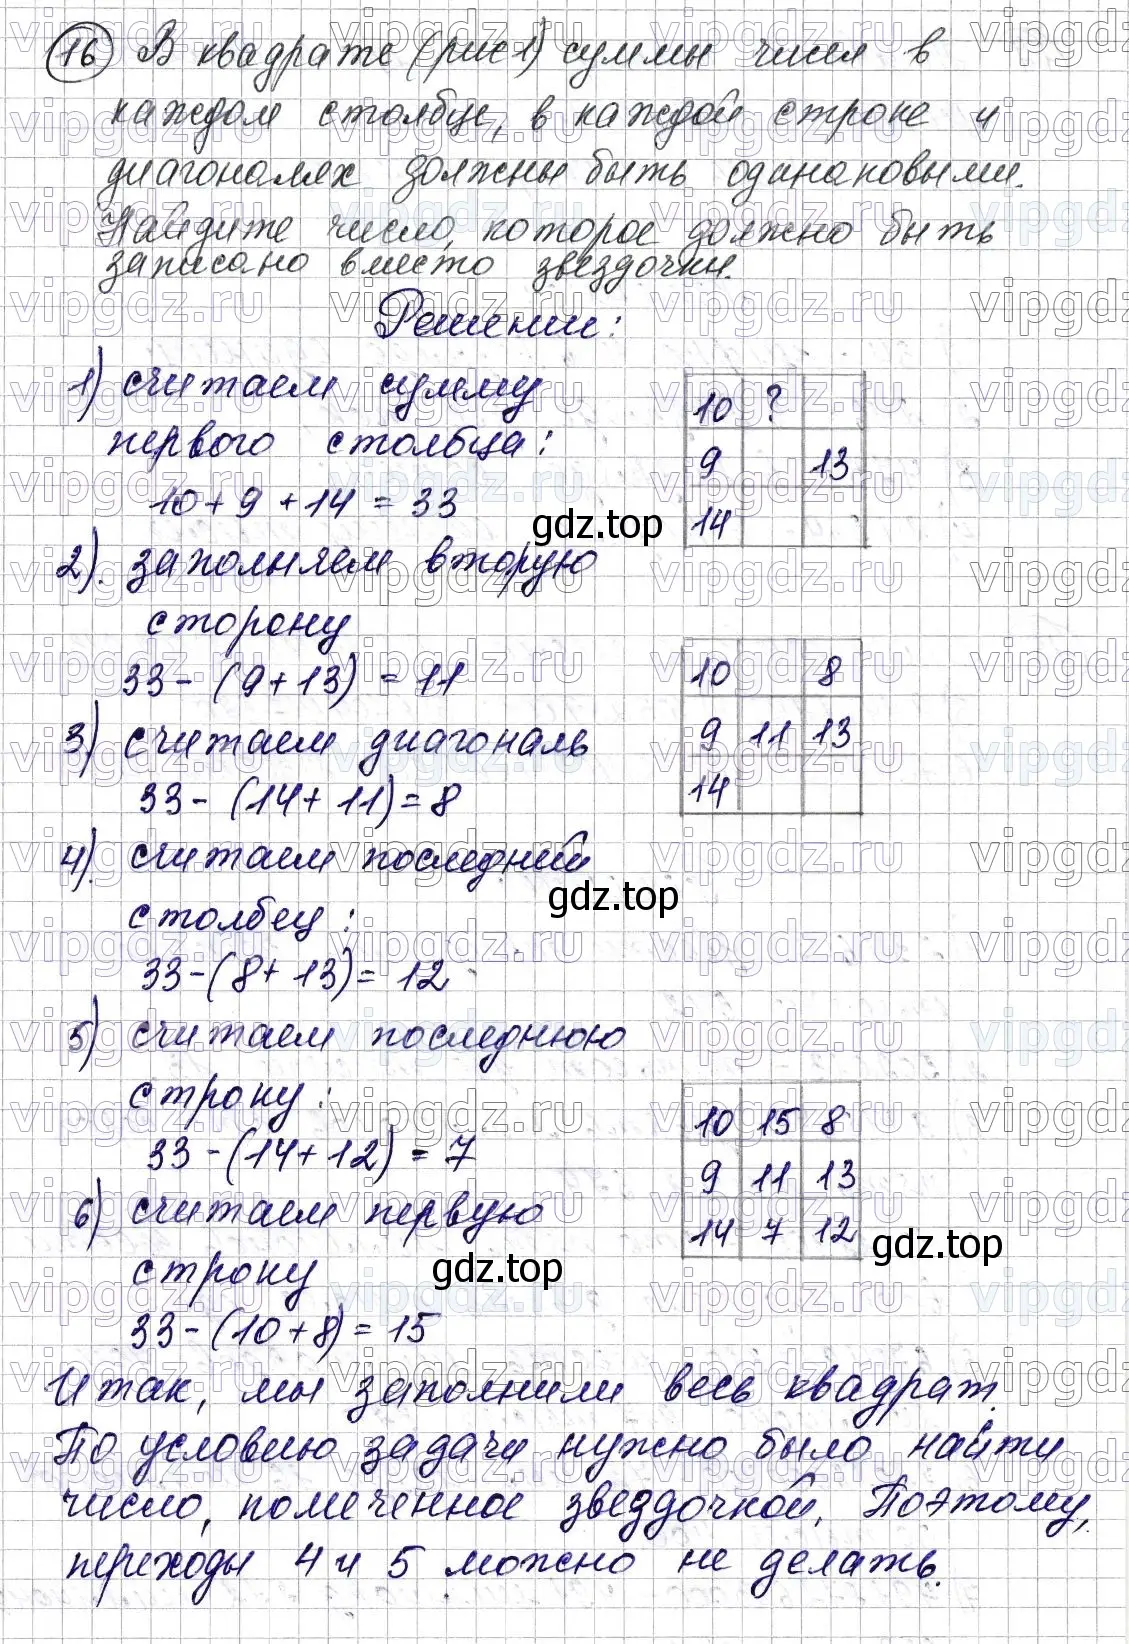 16 В квадрате (рис 1) суммы чисел в
каждом столбце, в каждой строке и
диагоналях должны быть одинаковыми.
Найдите число, которое должно быть
записано вместо звездочки.
Решение:
1) считаем сумму
первого столбца:
10 + 9 + 14 = 33
10 ?
9 13
14
gdz.top
2). заполняем вторую
сторону
33 - (9 + 13) = 11
3) считаем диагональ
33 - (14 + 11) = 8
10 8
9 11 13
14
4). считаем последний
столбец:
gdz.top
33 - (8 + 13) = 12
5) считаем последнюю
строку:
33 - (14 + 12) = 7
6) считаем первую
строку
33 - (10 + 8) = 15
10 15 8
9 11 13
14 7 12
gdz.top
gdz.top
Итак, мы заполнили весь квадрат.
По условию задачи нужно было найти
число, помеченное звездочкой. Поэтому,
переходы 4 и 5 можно не делать.
vipgdz.ru